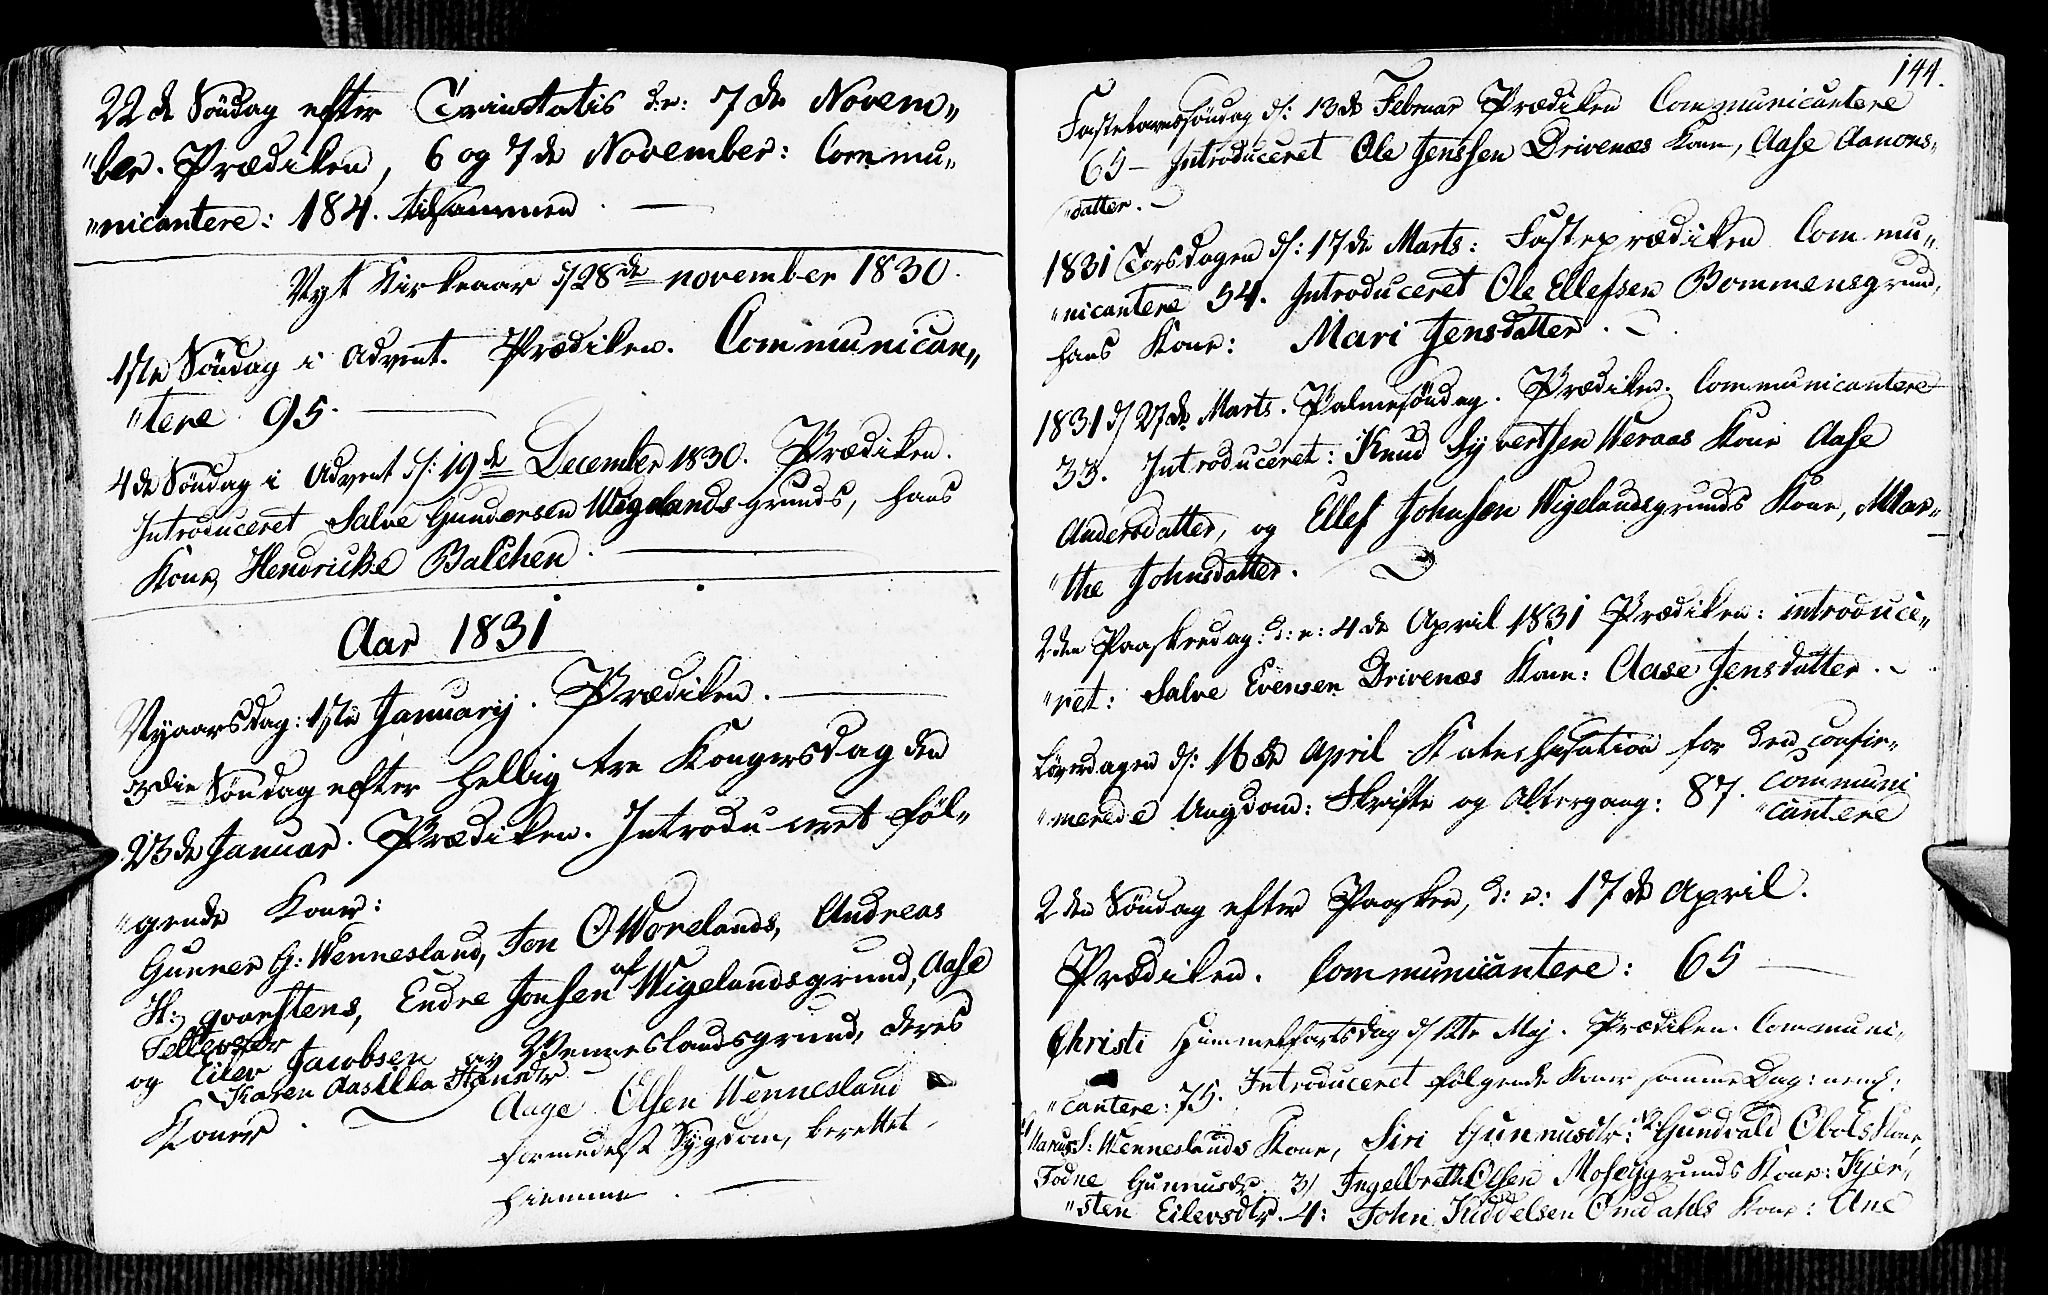 22de Søndag efter Trinitatis d.e: 7de Novem„
„ber. Prædiken, 6 og 7de November: Commu„
„nicantere: 184. tilsammen.
Nyt Kirkeaar d/28de november 1830.
1ste Søndag i Advent. Prædiken. Communican„
„tere 95.
4de Søndag i Advent d/: 19de December 1830. Prædiken.
Introduceret Salve Gundersen Wigelandsgrunds, hans
Kone, Hendricke Balchen.
Aar 1831
Nyaarsdag: 1ste Januarij. Prædiken.
3die Søndag efter Hellig tre Kongersdag den
23de Januar. Prædiken. Introduceret føl„
„gende Koner:
Gunner G: Wennesland, Jon O Worelands, Andreas
H: qvarstens, Endre Jonsen af Wigelandsgrund, Aase
Tellevsdtr
og Eilev Jacobsen av Wenneslandsgrund, deres
Karen Aasilla Hansdtr
Koner.
Aage Olsen Wennesland
formedelst Sygdom, berettet
hiemme.
144.
Fastelavnssøndag d/: 13de Februar Prædiken Communicantere
65 – Introduceret Ole Jenssen Drivenæs Kone, Aase Aanons„
„datter.
1831 Torsdagen d/: 17de Marts: Fasteprædiken Commu„
„nicantere 54. Introduceret Ole Ellefsen Bommensgrund,
hans Kone: Mari Jensdatter.
1831 d/ 27de Marts. Palmesøndag. Prædiken. Communicantere
33. Introduceret: Knud Syvertsen Weraas Kone Aase
Andersdatter, og Ellef Johnsen Wigelandsgrunds Kone, Mar„
„the Johnsdatter.
2den Paaskedag: d: e: 4de April 1831 Prædiken: introduce„
„ret: Salve Evensen Drivenæs Kone: Aase Jensdatter.
Løverdagen d/: 16de April Katechisation for den confir„
„merede Ungdom: Skrifte og Altergang: 87. Communi
„cantere
2den Søndag efter Paasken, d: e: 17de April.
Prædiken. Communicantere: 65
Christi Himmelfartsdag d/ 12te Maj. Prædiken. Communi„
„cantere: 75. Introduceret følgende Koner samme Dag: neml:
S: Wenneslands Kone, Siri Gunnusdtr: 2: Gundvald Kone,
Todne Gunnusdtr. 3/ Ingelbreth Olsen Moseygrunds Kone: Kjer„
„sten Eilevsdtr. 4: John Kiddelsen Omdahls Kone: Ane